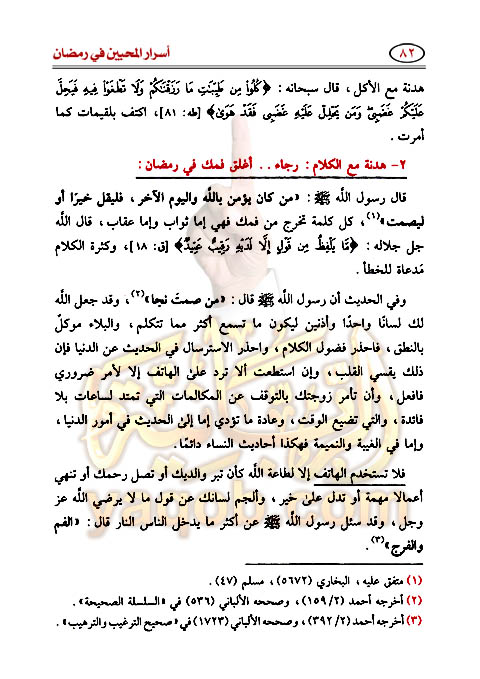 ٨٢
أسرار المحبين في رمضان
هدنة مع الأكل ، قال سبحانه : ﴿كُلُوا۟ مِن طَيِّبَٰتِ مَا رَزَقْنَٰكُمْ وَلَا تَطْغَوْا۟ فِيهِ فَيَحِلَّ
عَلَيْكُمْ غَضَبِى وَمَن يَحْلِلْ عَلَيْهِ غَضَبِى فَقَدْ هَوَىٰ﴾ [طه: ٨١]، اكتف بلقيمات كما
أمرت .
٢- هدنة مع الكلام : رجاء . . أغلق فمك في رمضان :
قال رسول اللَّه ﷺ : «من كان يؤمن باللَّه واليوم الآخر ، فليقل خيرًا أو
ليصمت»(١)، كل كلمة تخرج من فمك فهي إما ثواب وإما عقاب ، قال اللَّه
جل جلاله : ﴿مَّا يَلْفِظُ مِن قَوْلٍ إِلَّا لَدَيْهِ رَقِيبٌ عَتِيدٌ﴾ [ق: ١٨]، وكثرة الكلام
مَدعاة للخطأ .
وفي الحديث أن رسول اللَّه ﷺ قال : «من صمت نجا»(٢)، وقد جعل اللَّه
لك لسانًا واحدًا وأذنين ليكون ما تسمع أكثر مما تتكلم ، والبلاء موكلٌ
بالنطق ، فاحذر فضول الكلام ، واحذر الاسترسال في الحديث عن الدنيا فإن
ذلك يقسي القلب ، وإن استطعت ألا ترد على الهاتف إلا لأمر ضروري
فافعل ، وأن تأمر زوجتك بالتوقف عن المكالمات التي تمتد لساعات بلا
فائدة ، والتي تضيع الوقت ، وعادة ما تؤدي إما إلى الحديث في أمور الدنيا ،
وإما في الغيبة والنميمة فهكذا أحاديث النساء دائمًا .
فلا تستخدم الهاتف إلا لطاعة اللَّه كأن تبر والديك أو تصل رحمك أو تنهي
أعمالا مهمة أو تدل على خير ، وألجم لسانك عن قول ما لا يرضي اللَّه عز
وجل ، وقد سئل رسول اللَّه ﷺ عن أكثر ما يدخل الناس النار قال : «الفم
والفرج»(٣).
(١) متفق عليه ، البخاري (٥٦٧٢) ، مسلم (٤٧) .
(٢) أخرجه أحمد (٢/ ١٥٩) ، وصححه الألباني (٥٣٦) في «السلسلة الصحيحة» .
(٣) أخرجه أحمد (٢/ ٣٩٢) ، وصححه الألباني (١٧٢٣) في «صحيح الترغيب والترهيب» .